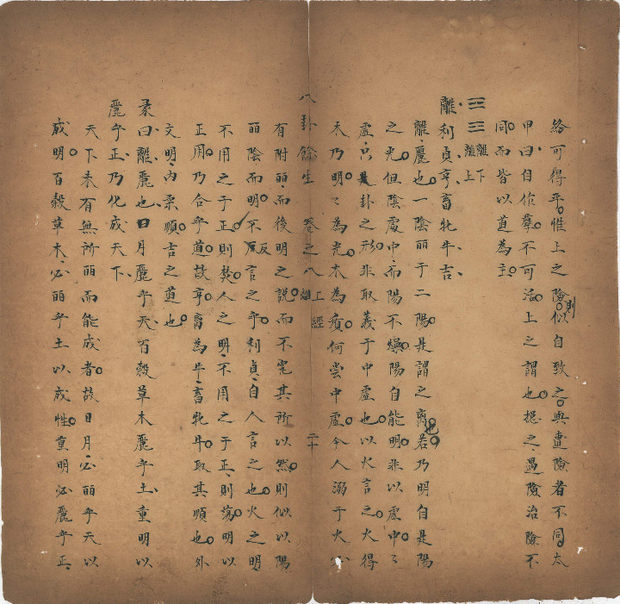 絡可得乎惟上之險則似自致之與遭險者不同太
甲曰自作孽不可活上之謂也總之遇險治險不
同而皆以道為主
☲☲離下離上
離利貞亨畜牝牛吉
離麗也一陰麗于二陽是謂之離也若乃明自是陽
之光但陰處中而陽不燥陽自能明非以虛中之
虛只是卦之形非取義于中虛也以火言之火得
木乃明明為光木為質何嘗中虛今人溺于火分
八卦餘生 卷之八 上經 二十
有附麗而後明之說而不究其所以然則似以陽
麗陰而明不反言之乎利貞自人言之也火之明
不用之于正則焚人之明不用之于正則蕩明以
正用乃合乎道故亨畜為牛畜牝牛取其順也外
文明內柔順吉之道也
彖曰離麗也日月麗乎天百穀草木麗乎土重明以
麗乎正乃化成天下
天下未有無所麗而能成者故日月必麗乎天以
成明百穀草木必麗乎土以成性重明必麗乎正